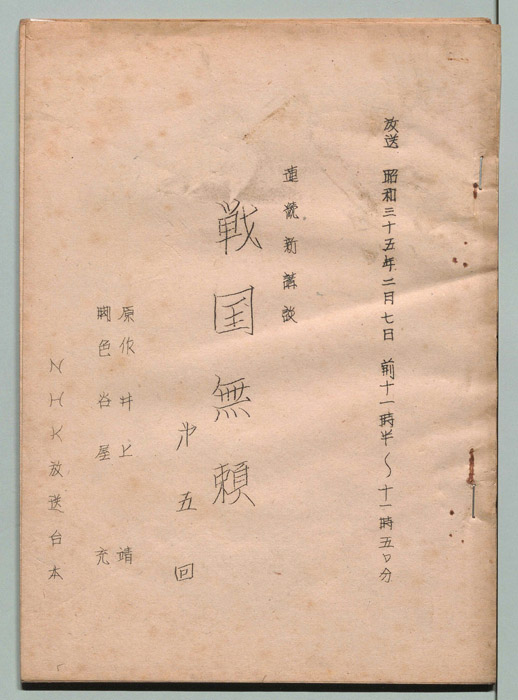 放送 昭和三十五年二月七日 前十一時半～十一時五〇分
連続新講談
戦国無頼
第五回
原作 井上 靖
脚色 谷屋 充
NHK放送台本